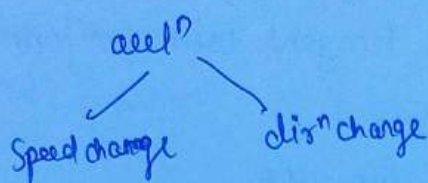 accelⁿ
Speed change
dirⁿ change